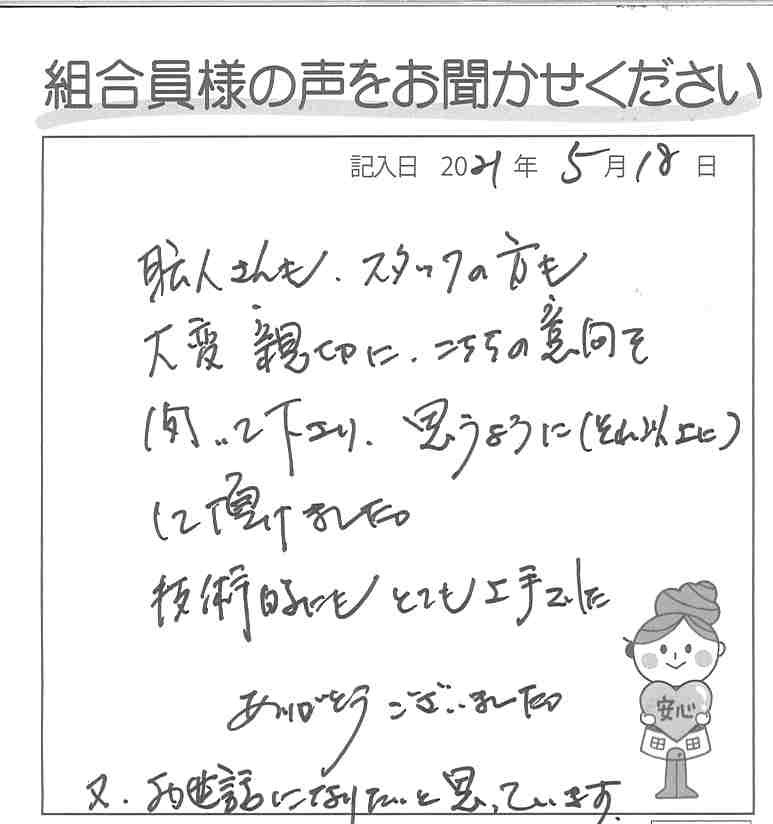 組合員様の声をお聞かせください
記入日 2021年 5月18日
職人さんも、スタッフの方も
大変親切に、こちらの意向を
聞いて下さり、思うように(それ以上に)
して頂けました。
技術的にもとても上手でした
ありがとうございました。
又、お世話になりたいと思っています。
安心